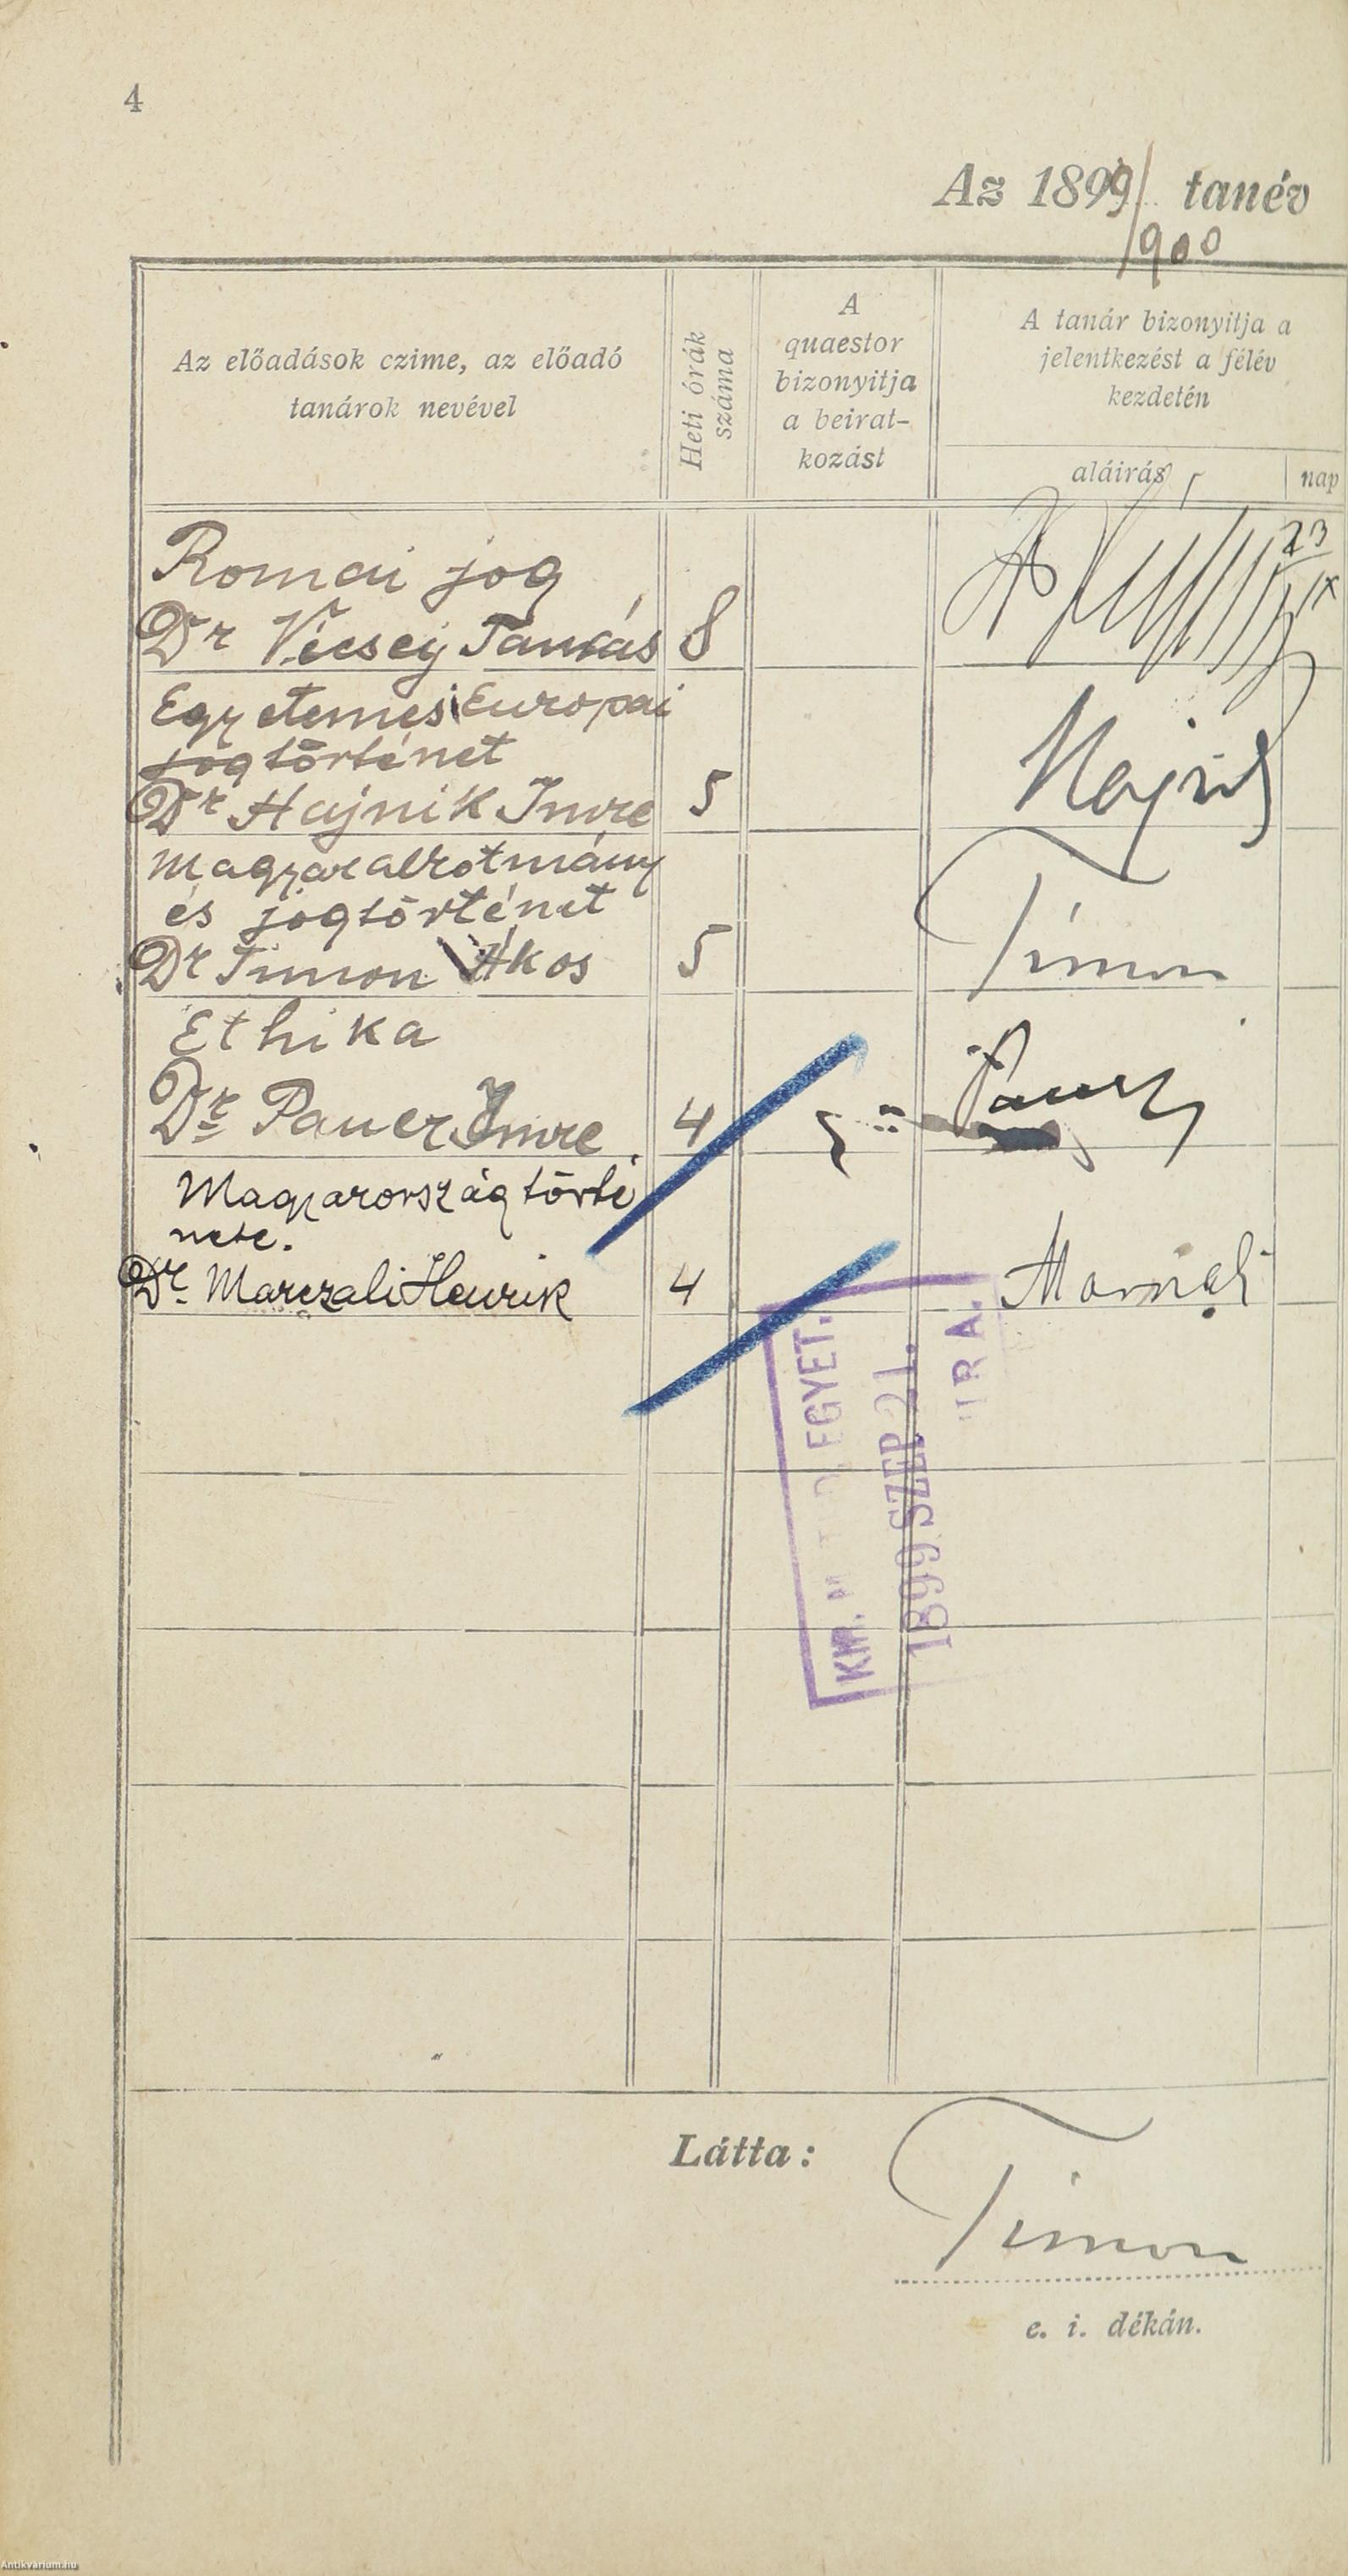 4
Az 1899/900 tanév
Az előadások czime, az előadó
tanárok nevével
Heti órák
száma
A
quaestor
bizonyitja
a beirat-
kozást
A tanár bizonyitja a
jelentkezést a félév
kezdetén
aláirás
nap
Romai jog
Dr Vécsey Tamás 8
23
IX
Egyetemes Europai
jogtörténet
Dr Hajnik Imre 5 Hajnik
Magyar alkotmány
és jogtörténet
Dr Timon Ákos 5 Timon
Ethika
Dr Pauer Imre 4 Pauer
Magyarország törté
nete.
Dr. Marczali Henrik 4 Marczali
EGYET.
1899 SZEP. 21.
Látta:
Timon
e. i. dékán.
Antikvarium.hu